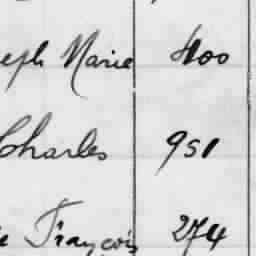 eph Marie 400
Charles 951
François 274